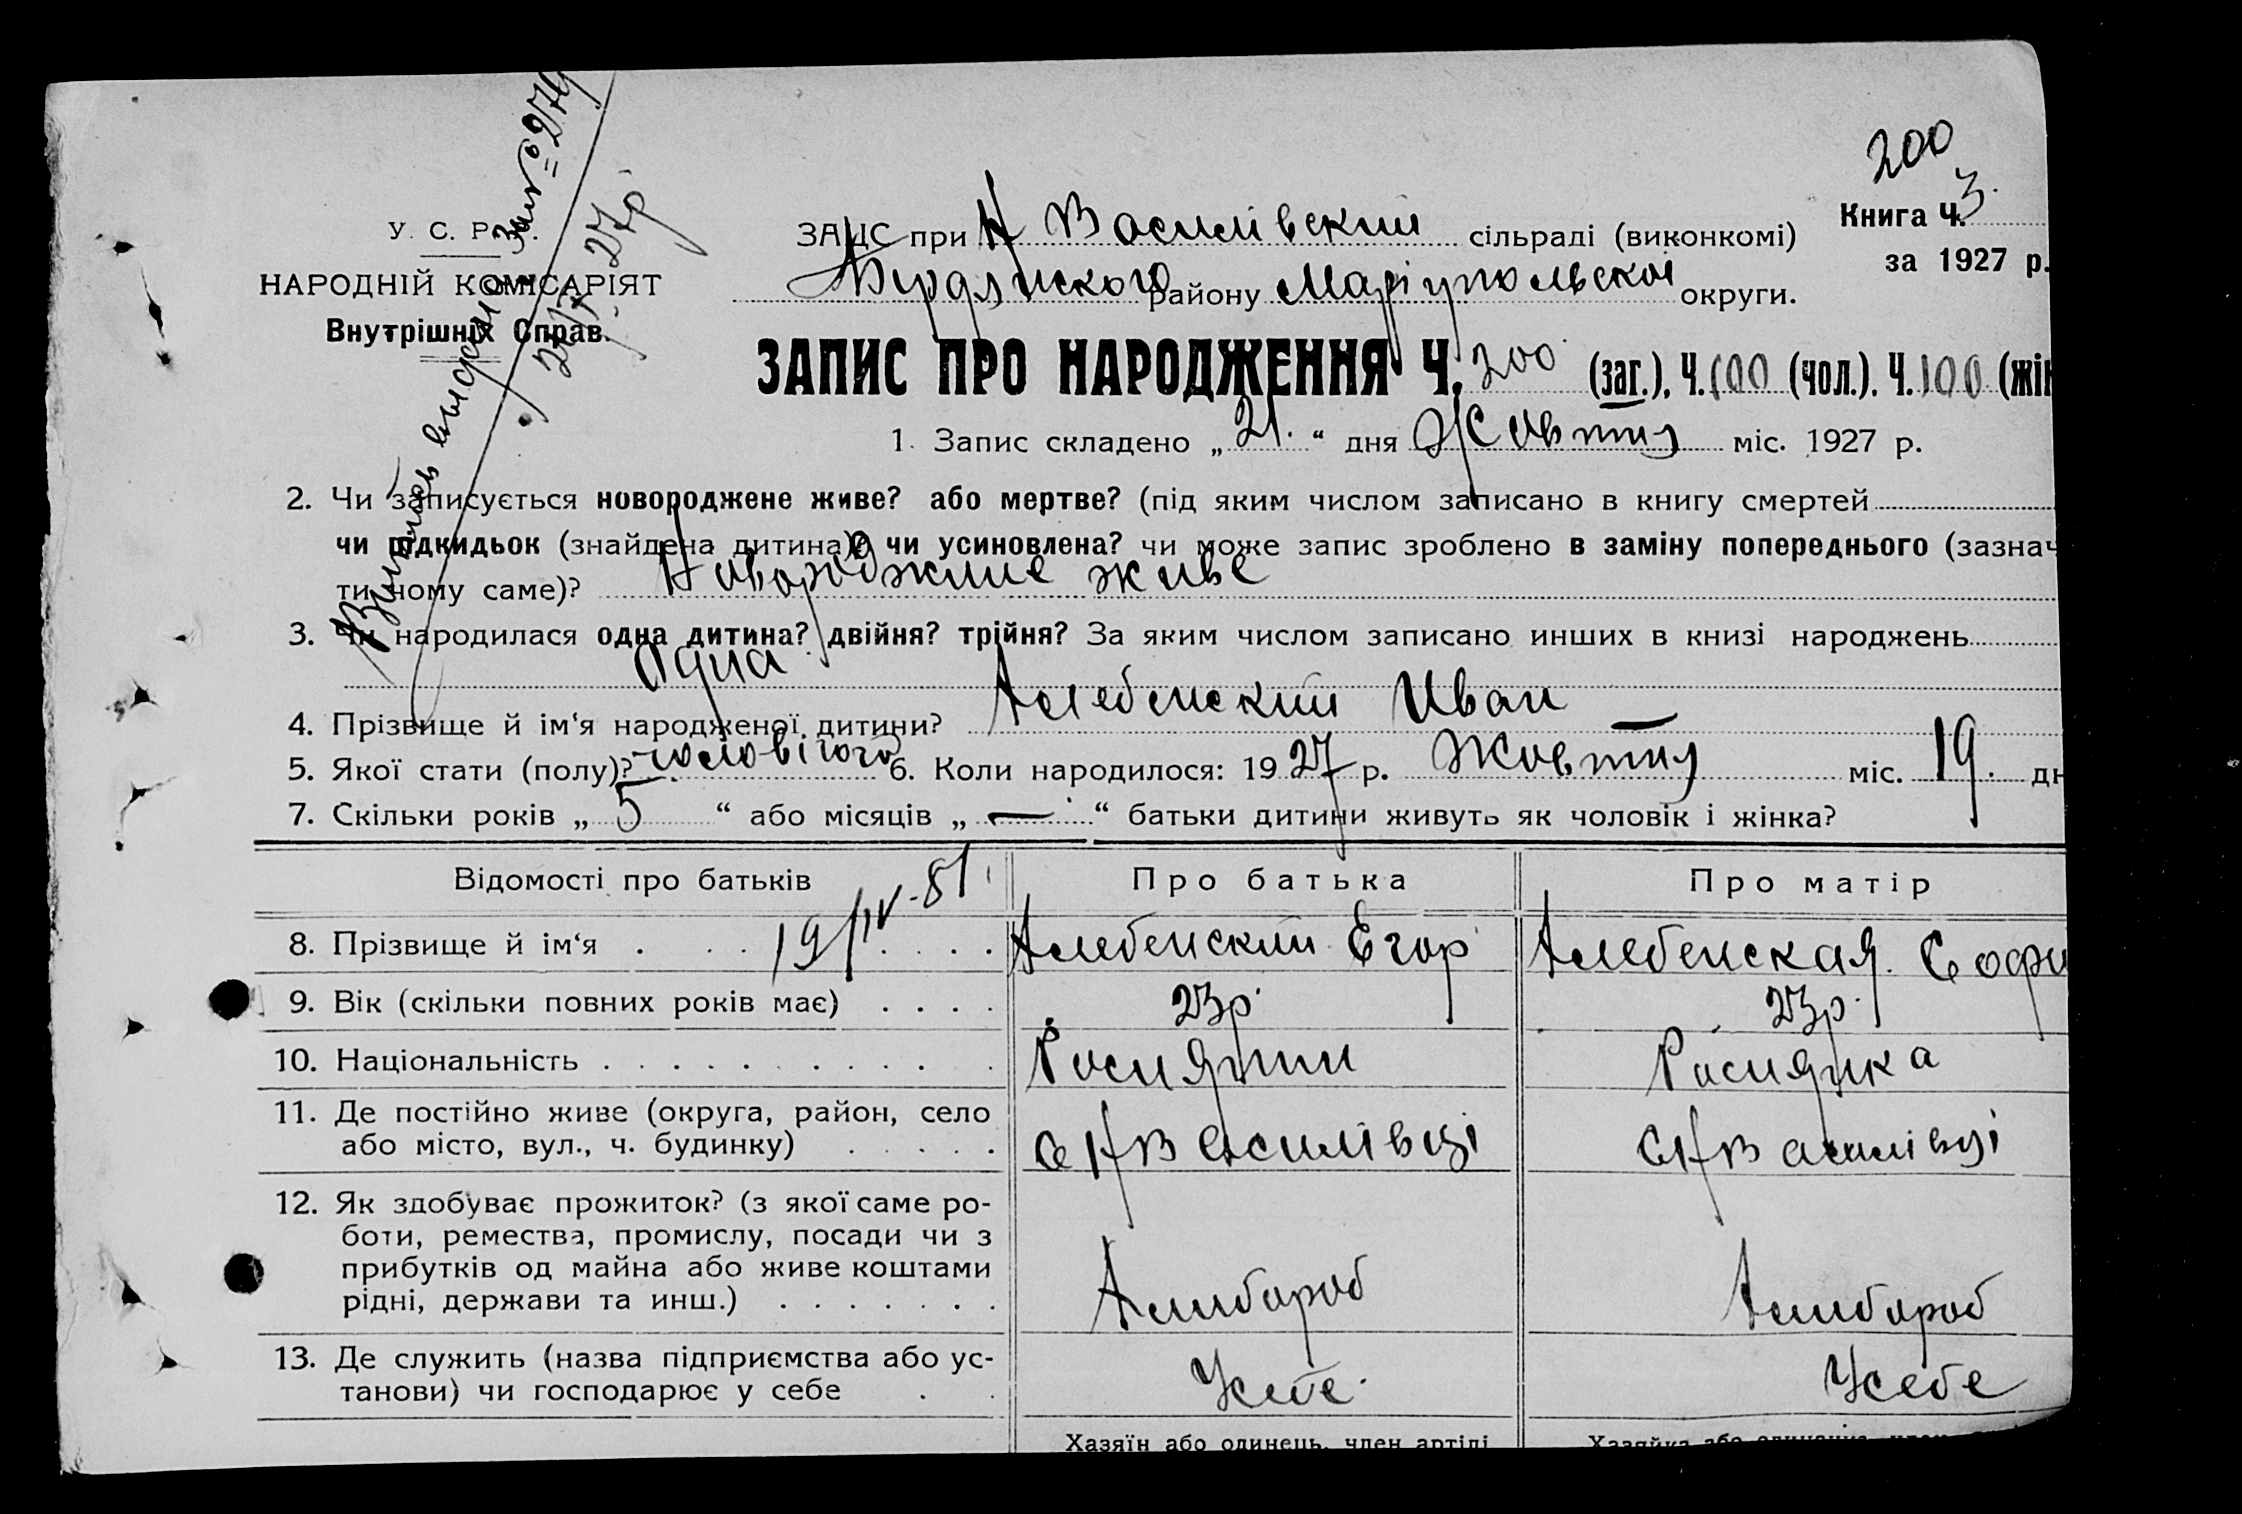 200
У. С. Р. Р.
НАРОДНІЙ КОМІСАРІЯТ
Внутрішніх Справ.
ЗАЦС при Н Василівский сільраді (виконкомі)
Книга Ч. 3.
за 1927 р.
Бердянского району Маріупольской округи.
ЗАПИС ПРО НАРОДЖЕННЯ Ч. 200 (заг.), Ч. 100 (чол.). Ч. 100 (жін
1. Запис складено „21.“ дня Жовтня міс. 1927 р.
2. Чи записується новороджене живе? або мертве? (під яким числом записано в книгу смертей
чи підкидьок (знайдена дитина)? чи усиновлена? чи може запис зроблено в заміну попереднього (зазнач
ти чому саме)? Новорожине живе
3. Чи народилася одна дитина? двійня? трійня? За яким числом записано инших в книзі народжень
Одна
4. Прізвище й ім‘я народженої дитини? Алебенский Иван
5. Якої стати (полу)? чоловічого 6. Коли народилося: 1927 р. Жовтня міс. 19. дн
7. Скільки років „5“ або місяців „—“ батьки дитини живуть як чоловік і жінка?
Відомості про батьків Про батька Про матір
19/IV-81
8. Прізвище й ім‘я . . . . . . . Алебенский Егор Алебенская Софи
9. Вік (скільки повних років має) . . . . 23р. 23р.
10. Національність . . . . . . . . . Росиянин Росиянка
11. Де постійно живе (округа, район, село
або місто, вул., ч. будинку) . . . . . с Н Василівці с Н Василівці
12. Як здобуває прожиток? (з якої саме ро-
боти, ремества, промислу, посади чи з
прибутків од майна або живе коштами
рідні, держави та инш.) . . . . . . . Хлибороб Хлибороб
13. Де служить (назва підприємства або ус-
танови) чи господарює у себе . . У себе У себе
Хазяїн або одинець, член артілі
Хазяйка або одиначка, член